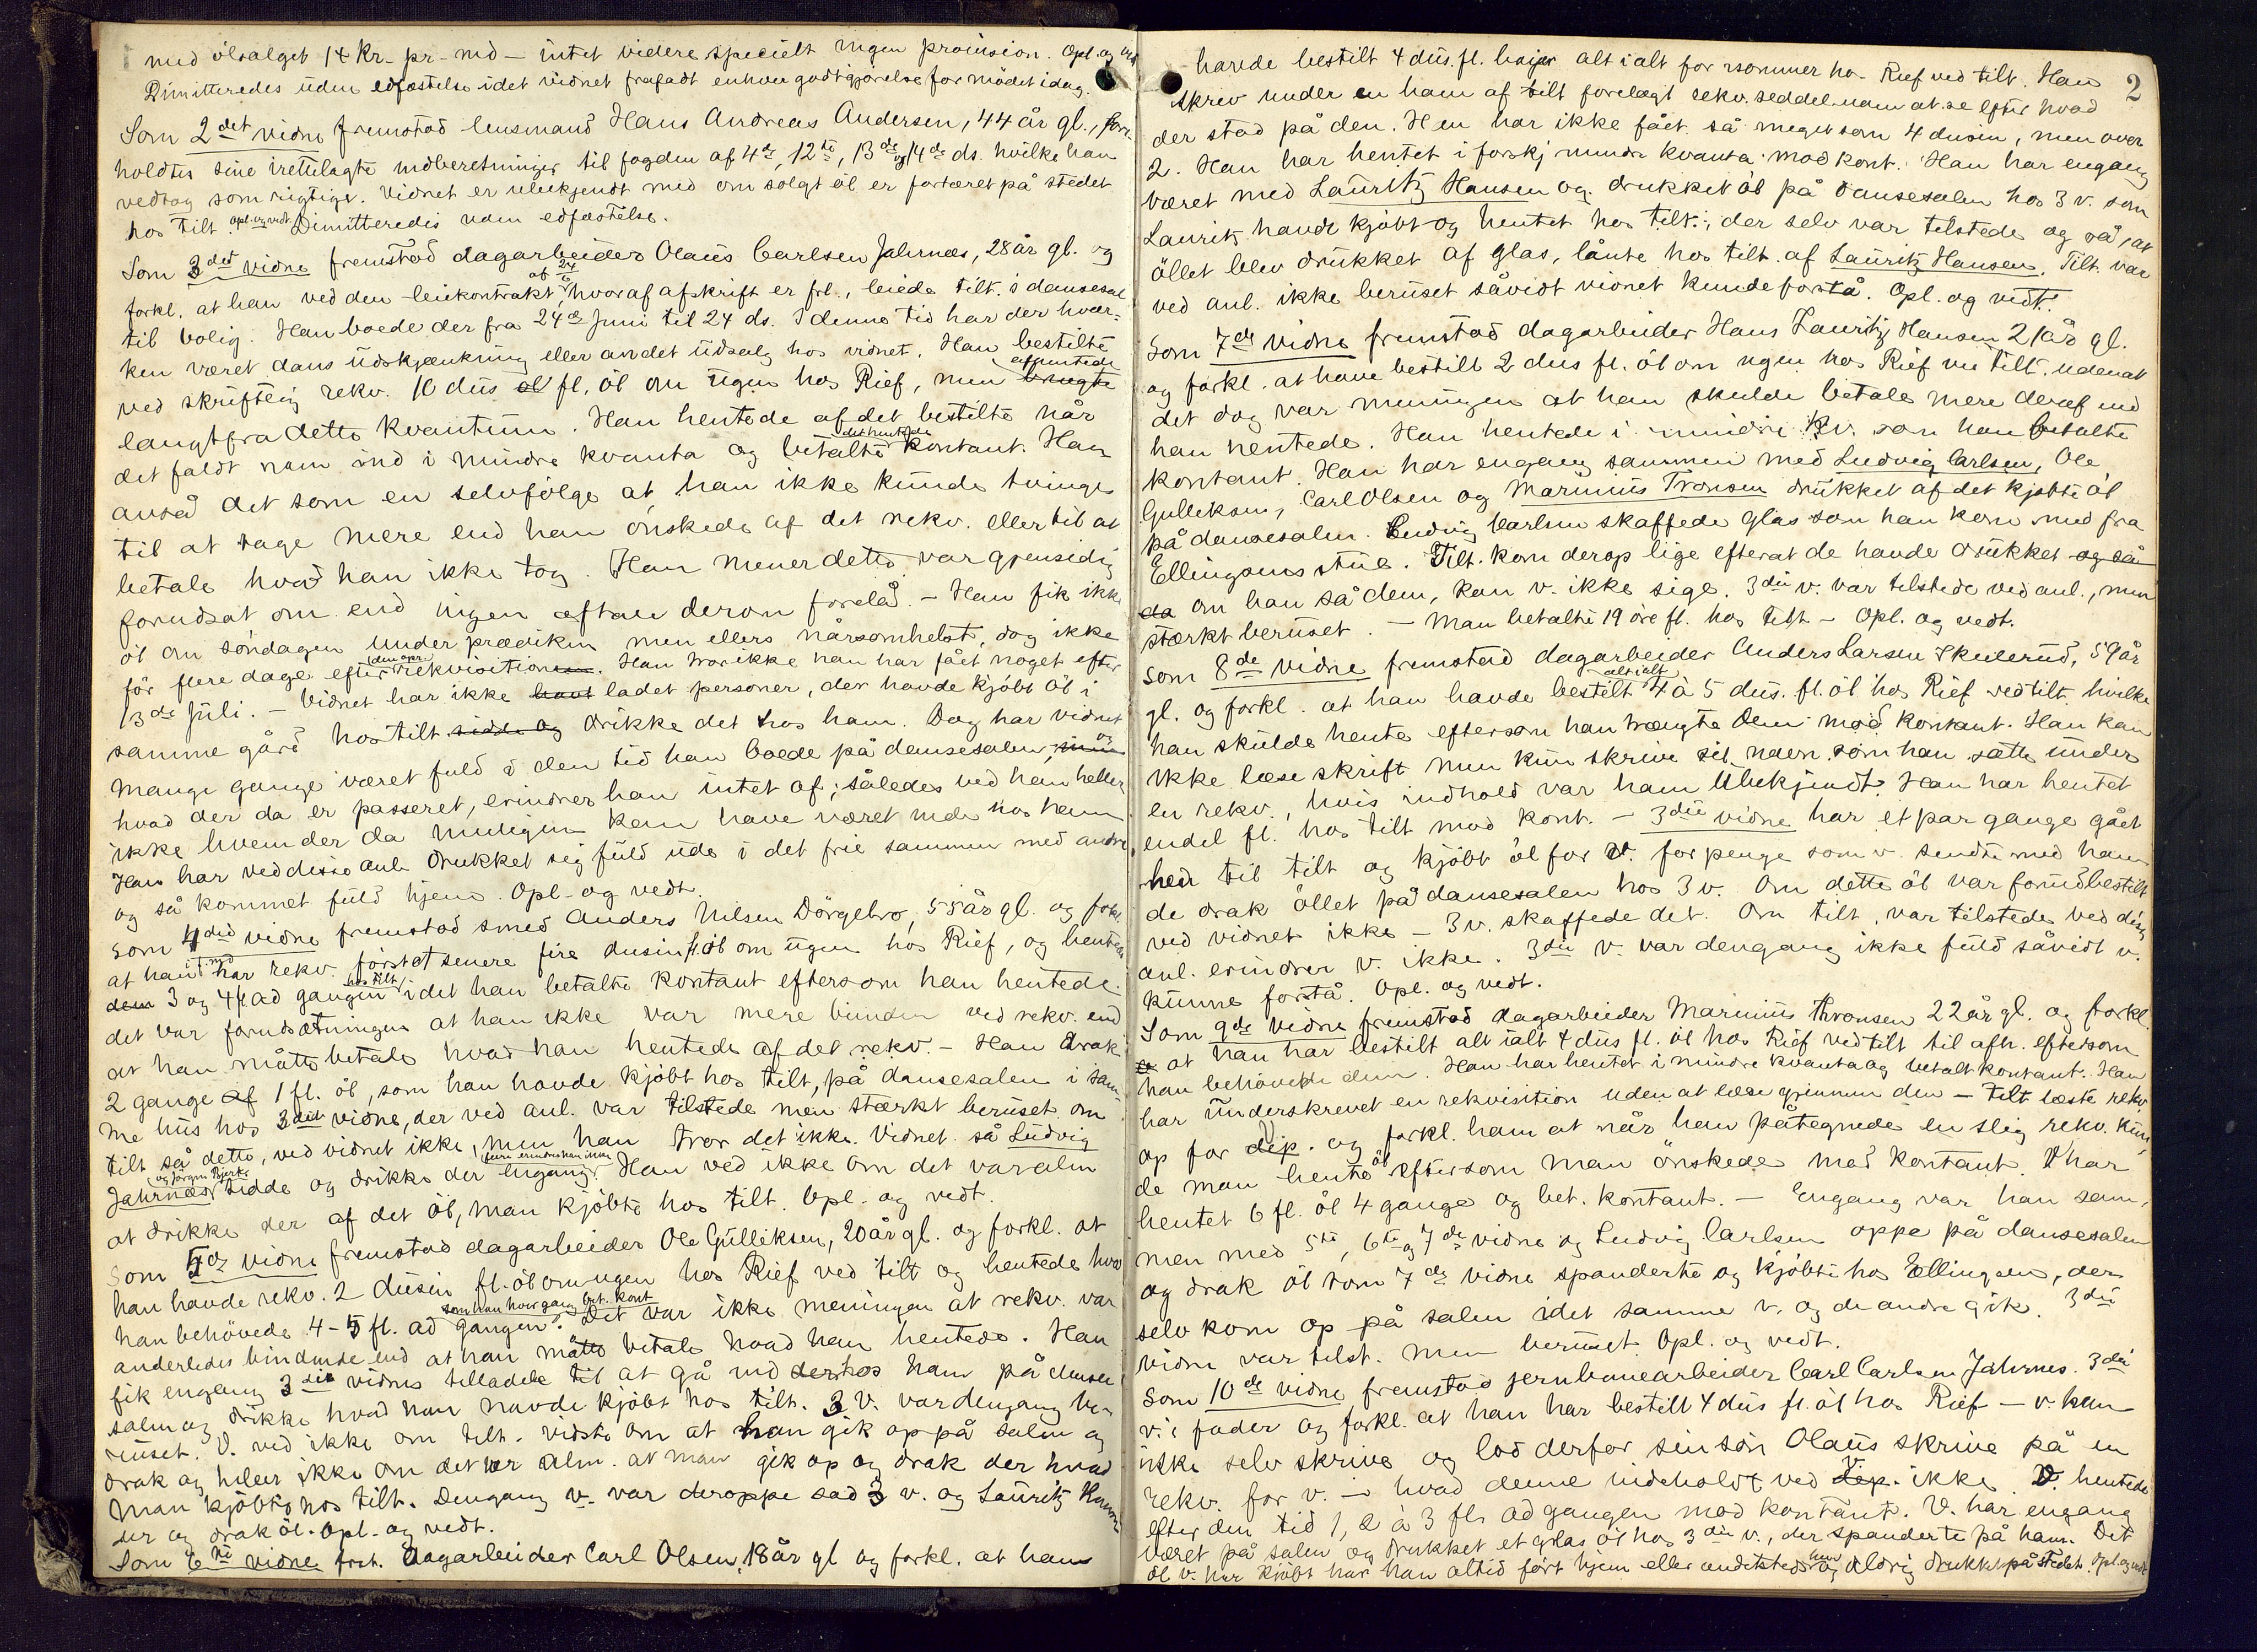 med ölsalget 14 Kr. pr. md – intet videre specielt ingen provision. Opl. og vedt
Dimitteredes uden edfæstelse idet vidnet frafaldt enhver godtgjörelse for mödet idag.
Som 2det vidne fremstod lensmand Hans Andreas Andersen, 44 år gl., fore-
holdtes sine irettelagte indberetninger til fogden af 4de, 12te, 13de og 14de ds. hvilke han
vedtog som rigtige. Vidnet er ubekjendt med om solgt öl er fortæret på stedet
hos tilt. Opl. og vedt. Dimitteredes uden edfæstelse.
Som 3det vidne fremstod dagarbeider Olaus Carlsen Jahrnæs, 28 år gl. og
forkl. at han ved den leiekontrakt af 24/6 hvoraf afskrift er frl., leiede tilt.s dansesal
til bolig. Han boede der fra 24de Juni til 24 ds. I denne tid har der hver-
ken været dans udskjænkning eller andet udsalg hos vidnet. Han bestilte
ved skriftlig rekv. 10 dus öl fl. öl om ugen hos Rief, men brugte afhentede
langtfra dette kvantum. Han hentede af det bestilte når
det faldt ham ind i mindre kvanta og betalte det hentede kontant. Han
anså det som en selvfölge at han ikke kunde tvinges
til at tage mere end han önskede af det rekv. eller til at
betale hvad han ikke tog. Han mener dette var gjensidig
forudsat om end ingen aftale derom forelå. – Han fik ikke
öl om söndagen under prædiken men ellers nårsomhelst, dog ikke
för flere dage efter den opr. rekvisitionen. Han tror ikke han har fået noget efter
13de Juli. – Vidnet har ikke havt ladet personer, der havde kjöbt öl i
samme gård hos tilt. sidde og drikke det hos ham. Dog har vidnet
mange gange været fuld i den tid han boede på dansesalen, og
hvad der da er passeret, erindrer han intet af; således ved han heller
ikke hvem der da muligens kan have været inde hos ham
Han har ved disse anl. drukket sig fuld ude i det frie sammen med andre
og så kommet fuld hjem. Opl. og vedt.
Som 4de vidne fremstod smed Anders Nilsen Dörgebro, 55 år gl. og forkl.
at han har rekv. först et senere fire dusin fl. öl om ugen hos Rief, og hentede
dem 3 og 4 fl ad gangen hos tilt. idet han betalte kontant eftersom han hentede.
det var forudsætningen at han ikke var mere bunden ved rekv. end
at han måtte betale hvad han hentede af det rekv. – Han drak
2 gange af 1 fl. öl, som han havde kjöbt hos tilt, på dansesalen i sam-
me hus hos 3die vidne, der ved anl. var tilstede men stærkt beruset. om
tilt så dette, ved vidnet ikke, men han tror det ikke. Vidnet så Ludvig
Jahrnæs og Jörgen Bjerke sidde og drikke der engang flere erindres han ikke. Han ved ikke om det var alm
at drikke der af det öl, man kjöbte hos tilt. Opl. og vedt.
Som 5te vidne fremstod dagarbeider Ole Gulliksen, 20 år gl. og forkl. at
han havde rekv. 2 dusin fl. öl om ugen hos Rief ved tilt og hentede hva
han behövede 4-5 fl. ad gangen som han hver gang bet. kont. Det var ikke meningen at rekv. var
anderledes bindende end at han måtte betale hvad han hentede. Han
fik engang 3die vidnes tilladelse til at gå ind der hos ham på danse
salen og drikke hvad han havde kjöbt hos tilt. 3 V. var dengang be-
ruset. V. ved ikke om tilt. vidste om at han gik op på salen og
drak og heller ikke om det var alm. at man gik op og drak der hvad
man kjöbte hos tilt. Dengang v. var deroppe sad 3 v. og Lauritz Han
ser og drak öl. Opl. og vedt.
Som 6te vidne frst. dagarbeider Carl Olsen, 18 år gl og forkl. at han
2
havde bestilt 4 dus. fl. baier alt i alt for sommer hos Rief ved tilt. Han
skrev under en ham af tilt forelagt rekv. seddel uden at se efter hvad
der stod på den. Han har ikke fået så meget som 4 dusin, men over
2. Han har hentet i forskj mindre kvanta mod kont. Han har engang
været med Lauritz Hansen og drukket öl på dansesalen hos 3 v. som
Lauritz havde kjöbt og hentet hos tilt., der selv var tilstede og så, at
öllet blev drukket af glas, lånte hos tilt. af Lauritz Hansen. Tilt. var
ved anl. ikke beruset såvidt vidnet kunde forstå. Opl. og vedt.
Som 7de vidne fremstod dagarbeider Hans Lauritz Hansen 21 år gl.
og forkl. at have bestilt 2 dus fl. öl om ugen hos Rief ved tilt. uden at
det dog var meningen at han skulde betale mere deraf end
han hentede. Han hentede i mindre kv. som han betalte
kontant. Han har engang sammen med Ludvig Carlsen, Ole
Gulliksen, Carl Olsen og Marinius Tronsen drukket af det kjöbte öl
på dansesalen. Ludvig Carlsen skaffede glas som han kom med fra
Ellingsens stue. Tilt. kom derop lige efterat de havde drukket og så
da om han så dem, kan v. ikke sige. 3die v. var tilstede ved anl., men
stærkt beruset. – Man betalte 19 öre fl. hos tilt – Opl. og vedt.
Som 8de vidne fremstod dagarbeider Anders Larsen Skulerud, 59 år
gl. og forkl. at han havde bestilt alt i alt 4 à 5 dus. fl. öl hos Rief ved tilt. hvilke
han skulde hente eftersom han trængte dem mod kontant. Han kan
ikke læse skrift men kun skrive sit navn som han satte under
en rekv., hvis indhold var ham ubekjendt. Han har hentet
endel fl. hos tilt mod kont. – 3die vidne har et par gange gået
hen til tilt og kjöbt öl for v. for penge som v. sendte med ham
de drak öllet på dansesalen hos 3 v. Om dette öl var forudbestilt
ved vidnet ikke – 3 v. skaffede det. Om tilt. var tilstede ved disse
anl. erindrer v. ikke. 3die v. var dengang ikke fuld såvidt v.
kunne forstå. Opl. og vedt.
Som 9de vidne fremstod dagarbeider Marinius Thronsen 22 år gl. og forkl.
at han har bestilt alt ialt 4 dus fl. öl hos Rief ved tilt til afh. eftersom
han behövede dem. Han har hentet i mindre kvanta og betalt kontant. Han
har underskrevet en rekvisition uden at læse gjennem den – tilt læste rekv.
op for dep. v og forkl. ham at når han påtegnede en slig rekv. kun-
de man hente öl eftersom man önskede mod kontant. V har
hentet 6 fl. öl 4 gange og bet. kontant. – Engang var han sam-
men med 5te, 6te og 7de vidne og Ludvig Carlsen oppe på dansesalen
og drak öl som 7de vidne spanderte og kjöbte hos Ellingsen, der
selv kom op på salen idet samme v. og de andre gik. 3die
vidne var tilst. men beruset. Opl. og vedt.
Som 10de vidne fremstod jernbanearbeider Carl Carlsen Jahrnes. 3die
v.s fader og forkl. at han har bestilt 4 dus fl. öl hos Rief – v. kan
ikke selv skrive og lod derfor sin sön Olaus skrive på en
rekv. for v. – hvad denne indeholdt ved dep. v ikke. V. hentede
efter den tid 1, 2 à 3 fl. ad gangen mod kontant. V. har engang
været på salen og drukket et glas öl hos 3die v., der spanderte på ham. Det
öl v. har kjöbt har han altid fört hjem eller andetsteds hen og aldrig drukket på stedet. Opl. og vedt